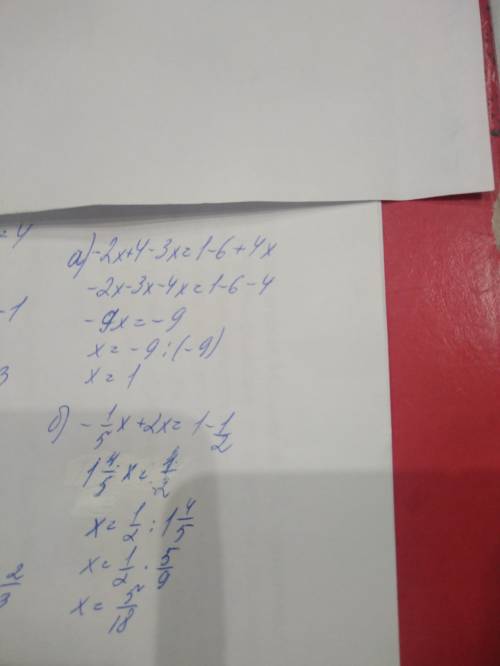 = 4
а) -2x+4-3x=1-6+4x
-2x-3x-4x=1-6-4
- 1
-9x=-9
x=-9:(-9)
3
x=1
б) -1/5x+2x=1-1/2
1 4/5 x=1/2
x=1/2:1 4/5
x=1/2·5/9
2/3
x=5/18